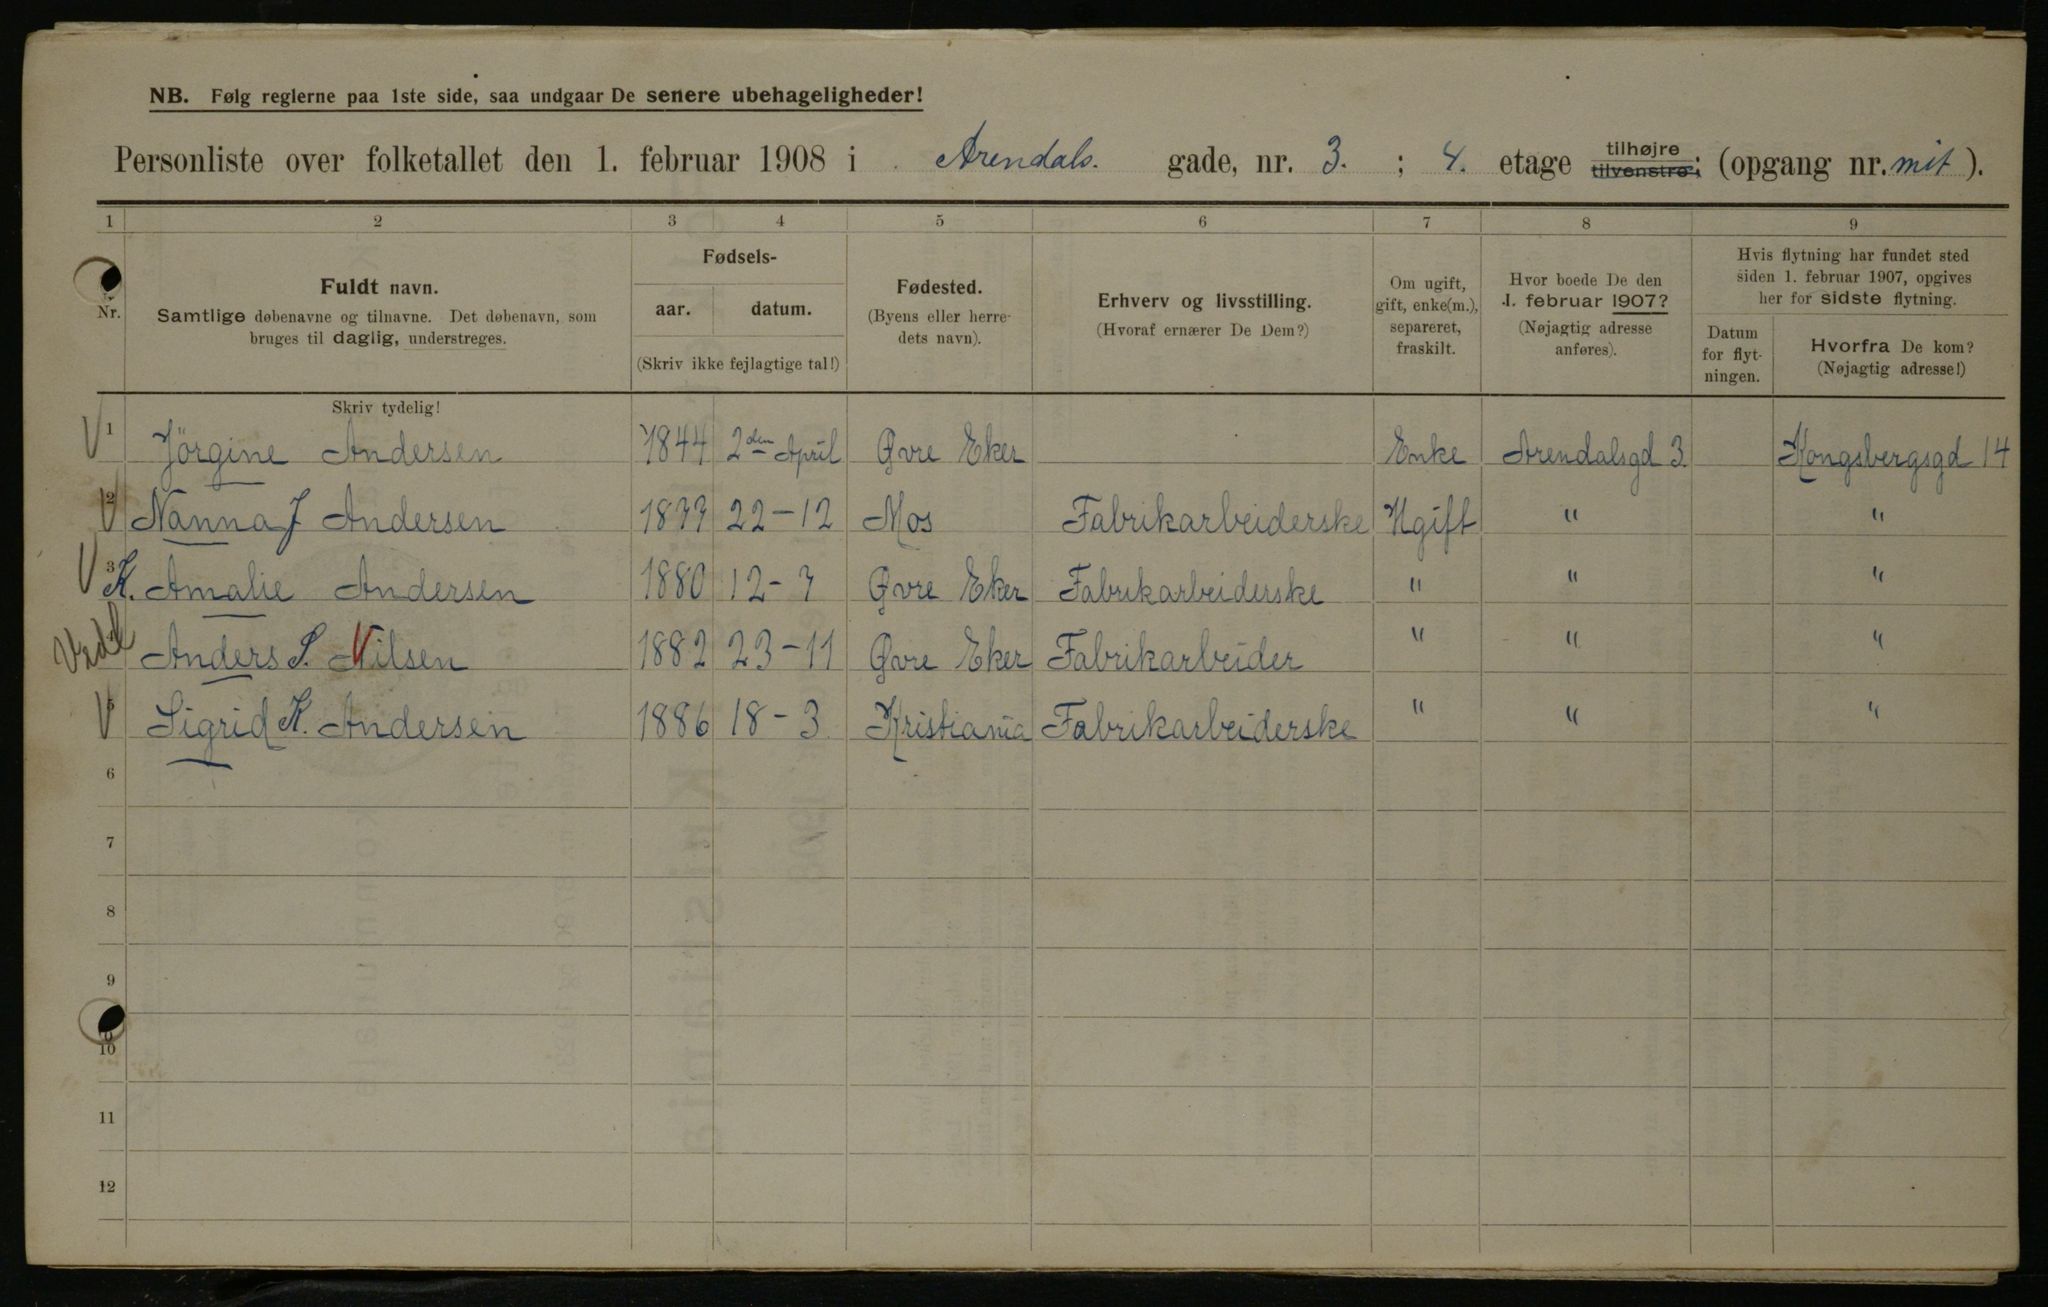 NB. Følg reglerne paa 1ste side, saa undgaar De senere ubehageligheder!
Personliste over folketallet den 1. februar 1908 i Arendals. gade, nr. 3. ; 4. etage tilhøjre tilvenstre; (opgang nr. mit).
1 2 3 4 5 6 7 8 9
Nr.
Fuldt navn.
Samtlige døbenavne og tilnavne. Det døbenavn, som
bruges til daglig, understreges.
Fødsels-
aar. datum.
(Skriv ikke fejlagtige tal!)
Fødested.
(Byens eller herre-
dets navn).
Erhverv og livsstilling.
(Hvoraf ernærer De Dem?)
Om ugift,
gift, enke(m.),
separeret,
fraskilt.
Hvor boede De den
1. februar 1907?
(Nøjagtig adresse
anføres).
Hvis flytning har fundet sted
siden 1. februar 1907, opgives
her for sidste flytning.
Datum
for flyt-
ningen.
Hvorfra De kom?
(Nøjagtig adresse!)
Skriv tydelig!
1 Jörgine Andersen 1844 2den April Øvre Eker Enke Arendalsgd 3. Kongsbergsgd 14
2 Nanna J Andersen 1877 22-12 Mos Fabrikarbeiderske Ugift " "
3 K. Amalie Andersen 1880 12-7 Øvre Eker Fabrikarbeiderske " " "
Anders S. Nilsen 1882 23-11 Øvre Eker Fabrikarbeider " " "
5 Sigrid K. Andersen 1886 18-3. Kristiania Fabrikarbeiderske " " "
6
7
8
9
10
11
12